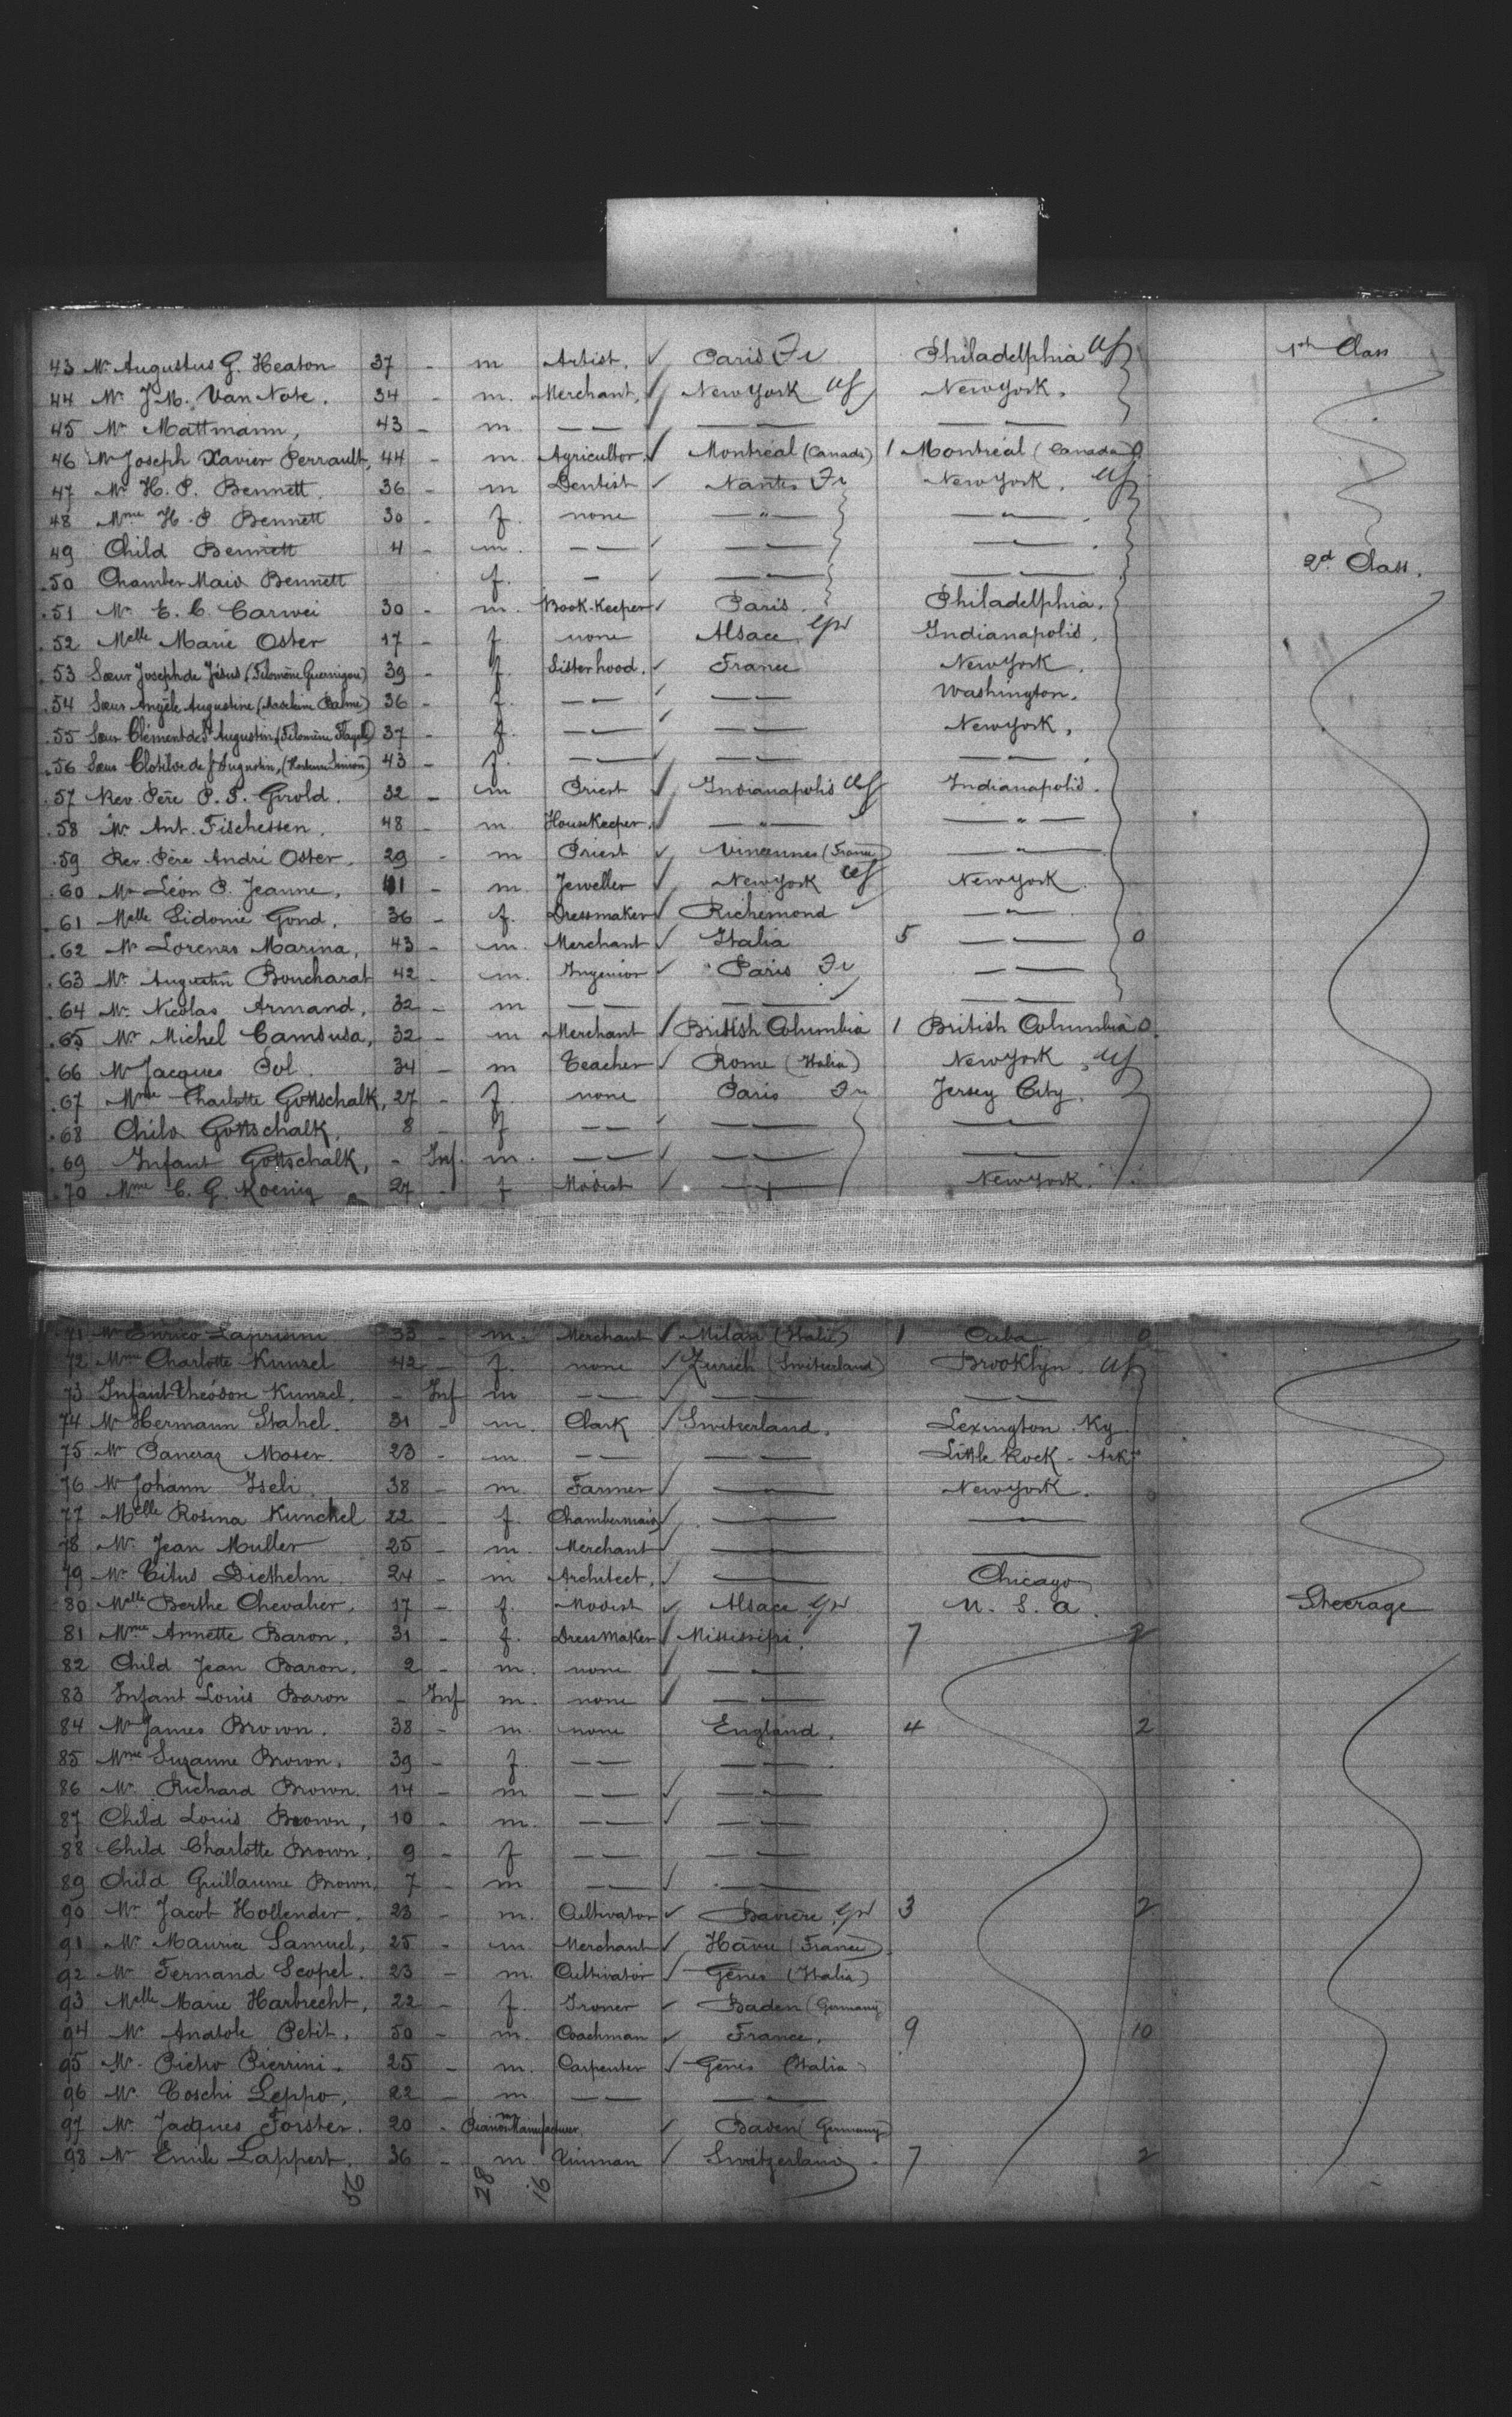 43 Mr Augustus G. Heaton 37 - m Artist. ✓ Paris Fr Philadelphia US 1st Class
44 Mr J.M. Van Note. 34 - m. Merchant, ✓ New York US New York.
45 Mr Mattmann, 43 - m. — — — — — —
46 Mr Joseph Xavier Perrault, 44 - m. Agricultor. ✓ Montréal (Canada) 1 Montréal (Canada) 0
47 Mr H. P. Bennett. 36 - m Dentist ✓ Nantes Fr New York. US
48 Mme H. P. Bennett 30 - f. none — " — — " —
49 Child Bennett 4 - m. — — ✓ — — — —
50 Chamber Maid Bennett f. — ✓ — — — — 2d Class.
51 Mr E. C. Carwei 30 - m. Book-Keeper ✓ Paris. Philadelphia.
52 Melle Marie Oster 17 - f. none Alsace Gr Indianapolis.
53 Sœur Joseph de Jésus (Filomène ) 39 - f. Sisterhood. ✓ France New York.
54 Sœur Angèle Augustine ( Palmé) 36 - f. — — ✓ — — Washington.
55 Sœur Clément de St Augustin, (Filomène ) 37 - f. — — ✓ — — New York.
56 Sœur Clotilde de St Augustin, ( ) 43 - f. — — — — — —
57 Rev. Père P. F. Girold. 32 - m Priest ✓ Indianapolis US Indianapolis.
58 Mr Ant. Fischessen. 48 - m. HouseKeeper. ✓ — " — — " —
59 Rev. Père André Oster. 29 - m Priest ✓ Vincennes (France) — " —
60 Mr Léon P. Jeanne, 41 - m. Jeweller ✓ New York US New York.
61 Melle Sidonie Gond. 36 - f. Dressmaker ✓ Richemond — " —
62 Mr Lorenzo Marina, 43 - m. Merchant ✓ Italia 5 — — 0
63 Mr Augustin Boucharat 42 - m. Ingenior ✓ Paris Fr — —
64 Mr Nicolas Armand, 32 - m — — — — — —
65 Mr Michel Camsusa, 32 - m Merchant ✓ British Columbia 1 British Columbia 0
66 Mr Jacques Pol. 34 - m Teacher ✓ Rome (Italia) New York US
67 Mme Charlotte Gottschalk, 27 - f. none Paris Fr Jersey City.
68 Child Gottschalk, 8 - f — — ✓ — — — —
69 Infant Gottschalk, - Inf. m. — — ✓ — — — —
70 Mme C. G. Koenig 27 - f Modist ✓ — — New York.
71 Mr Enrico 33 - m. Merchant ✓ Milan (Italie) 1 Cuba 0
72 Mme Charlotte Kunzel 42 - f. none ✓ Zurich (Switzerland) Brooklyn. US
73 Infant Théodore Kunzel. - Inf m — — ✓ — — — —
74 Mr Hermann Stahel. 31 - m. Clark ✓ Switzerland. Lexington. Ky.
75 Mr Pancraz Moser. 23 - m. — — — — Little Rock - Ark
76 Mr Johann Iseli. 38 - m. Farmer ✓ — " — New York.
77 Melle Rosina Kunckel 22 - f. Chambermaid ✓ — — — —
78 Mr Jean Muller 25 - m. Merchant ✓ — — — —
79 Mr Titus Diethelm. 24 - m Architect. ✓ — — Chicago
80 Melle Berthe Chevalier. 17 - f. Modist ✓ Alsace Gr U. S. a. Steerage
81 Mme Annette Baron. 31 - f. DressMaker ✓ Mississipi. 7 2
82 Child Jean Baron. 2 - m. none ✓ — —
83 Infant Louis Baron - Inf m. none ✓ — —
84 Mr James Brown. 38 - m. none England. 4 2
85 Mme Suzanne Brown. 39 - f. — — — —
86 Mr Richard Brown. 14 - m — — ✓ — —
87 Child Louis Brown, 10 - m. — — ✓ — —
88 Child Charlotte Brown. 9 - f — — — —
89 Child Guillaume Brown. 7 - m — — ✓ — —
90 Mr Jacob Hollender. 23 - m. Cultivator ✓ Bavière Gr 3 2
91 Mr Maurice Samuel, 25 - m. Merchant ✓ Hâvre (France)
92 Mr Fernand Scopel. 23 - m. Cultivator ✓ Gênes (Italia)
93 Melle Marie Harbrecht, 22 - f. Ironer ✓ Baden (Germany)
94 Mr Anatole Petit. 50 - m. Coachman ✓ France. 9 10
95 Mr Pietro Pierrini. 25 - m. Carpenter ✓ Gênes (Italia)
96 Mr Toschi Leppo, 22 - m — — — " —
97 Mr Jacques Forster. 20 - m Pianos Manufacturer. ✓ Baden (Germany)
98 Mr Emile Lappert. 36 - m. Tinman ✓ Switzerland - 7 2
56 28 16